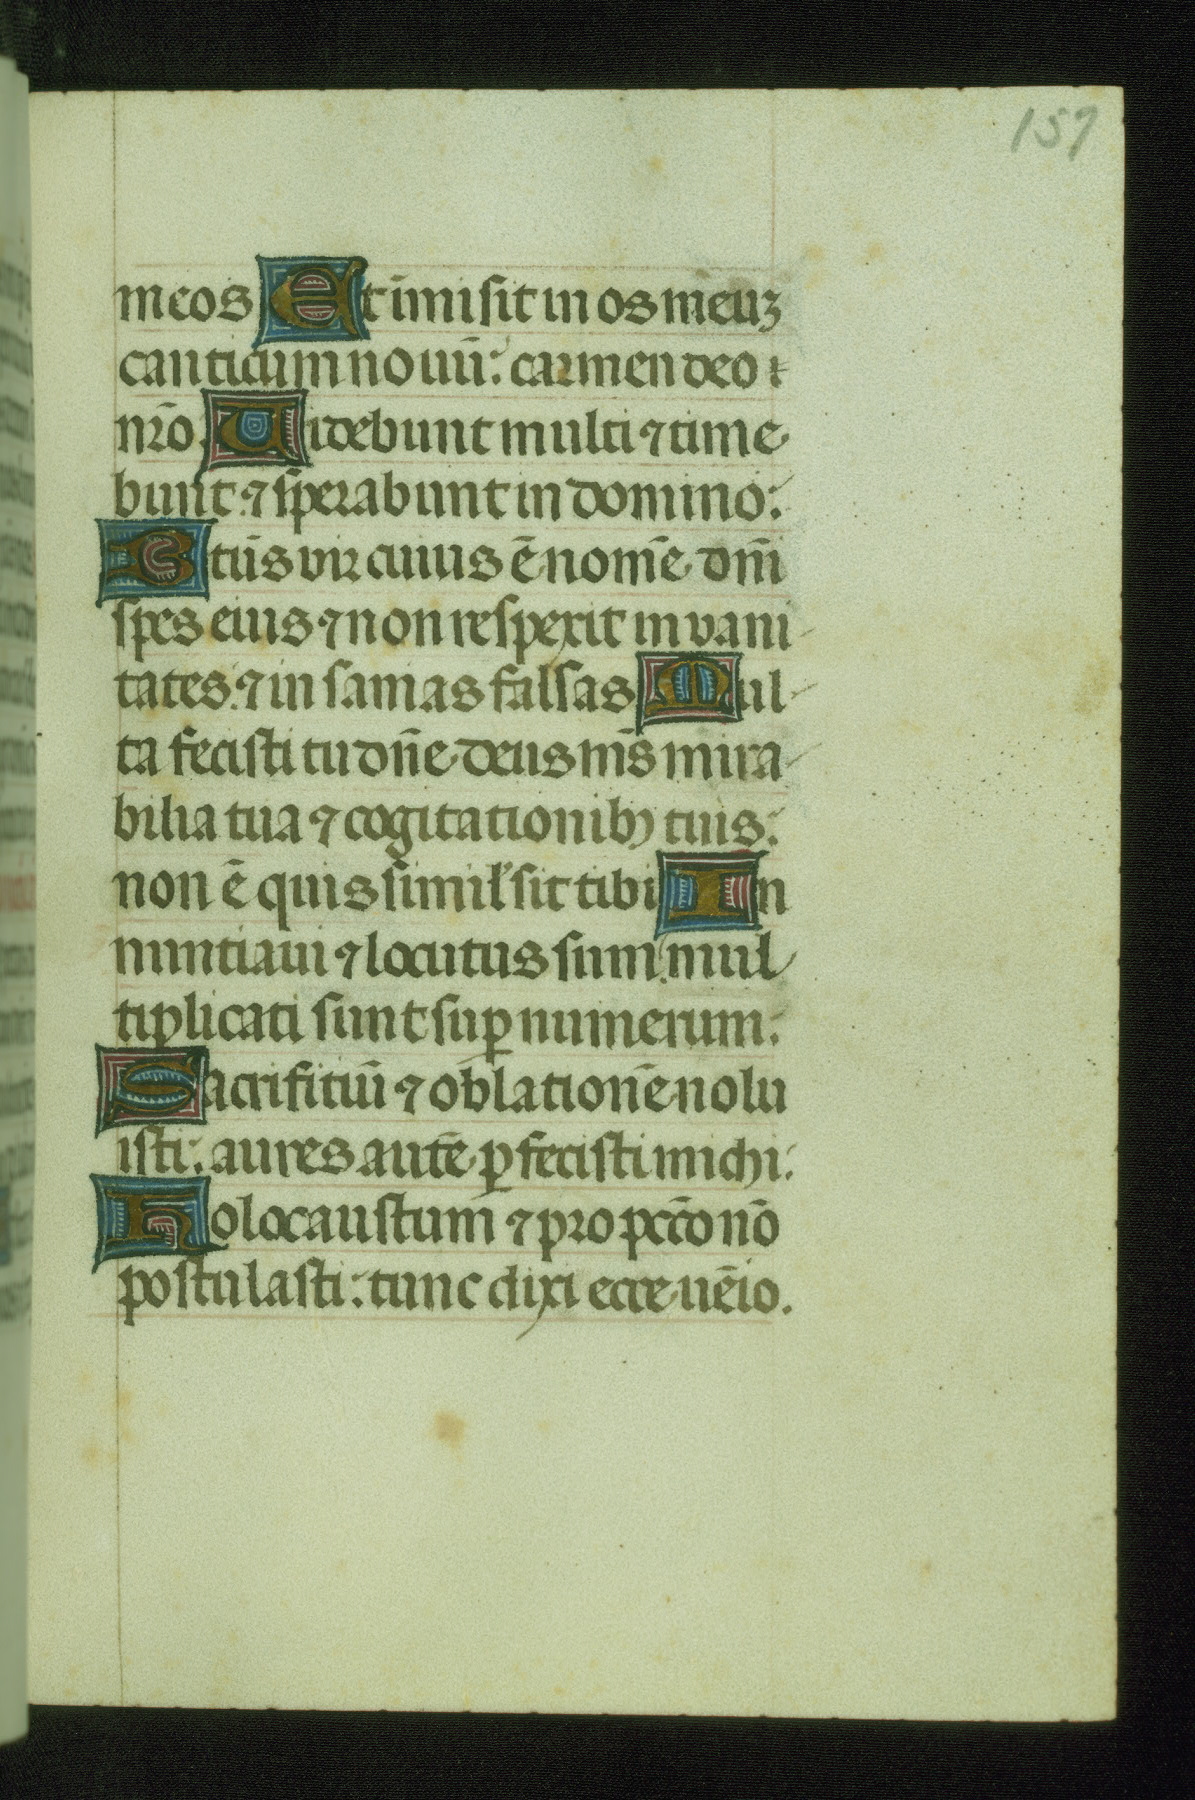 157
meos Et īmisit in os m̄euꝫ
canticum nouū: carmen deo
nr̄o. Uidebunt multi ⁊ time
bunt: ⁊ sperabunt in domino:
Btūs vir cuius ē nom̄e dn̄i
spes eius ⁊ non respexit in vani
tates: ⁊ in sanias falsas Mul
ta fecisti tu dn̄e deus ms̄ mira
bilia tua ⁊ cogitationibꝫ tuis:
non ē quis simil' sit tibi In
nuntiaui ⁊ locutus sum mul
tiplicati sunt suꝑ numerum:
Sacrifitiū ⁊ oblation̄e nolu
isti: aures aut̄e ꝑfecisti michi:
Holocaustum ⁊ pro pctō nō
postulasti: tunc dixi ecce uēio.